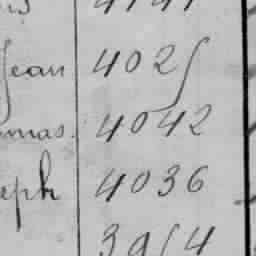 Jean 4025
mas. 4042
eph 4036
3914